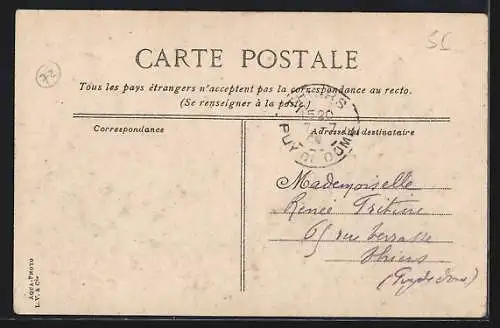 SC
72
CARTE POSTALE
Tous les pays étrangers n'acceptent pas la correspondance au recto.
(Se renseigner à la poste.)
THIERS
15 20
PUY DE DOME
Correspondance
Adresse du destinataire
Mademoiselle
Renée
65 rue Terrasse
Thiers
(Puy de Dome)
AQUA-PHOTO
L. V. & Cie